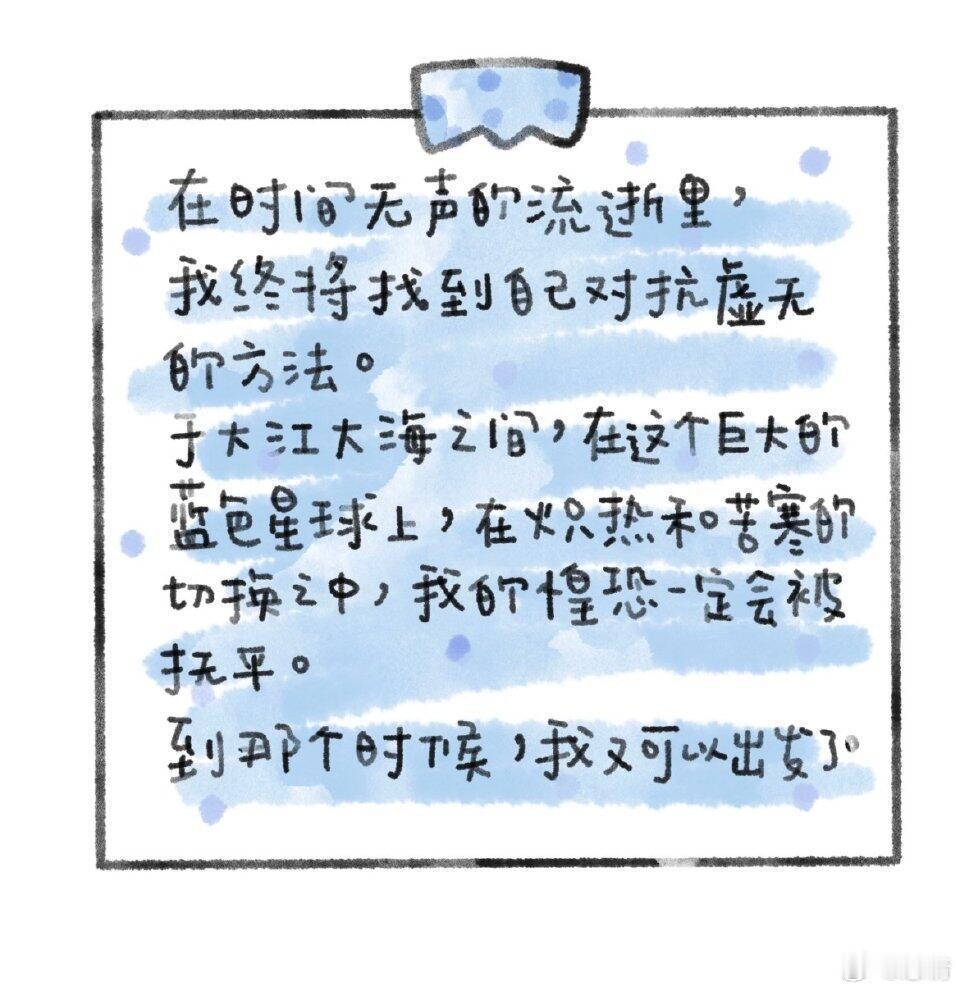 在时间无声的流逝里，
我终将找到自己对抗虚无
的方法。
于大江大海之间，在这个巨大的
蓝色星球上，在炽热和苦寒的
切换之中，我的惶恐一定会被
抚平。
到那个时候，我又可以出发了。